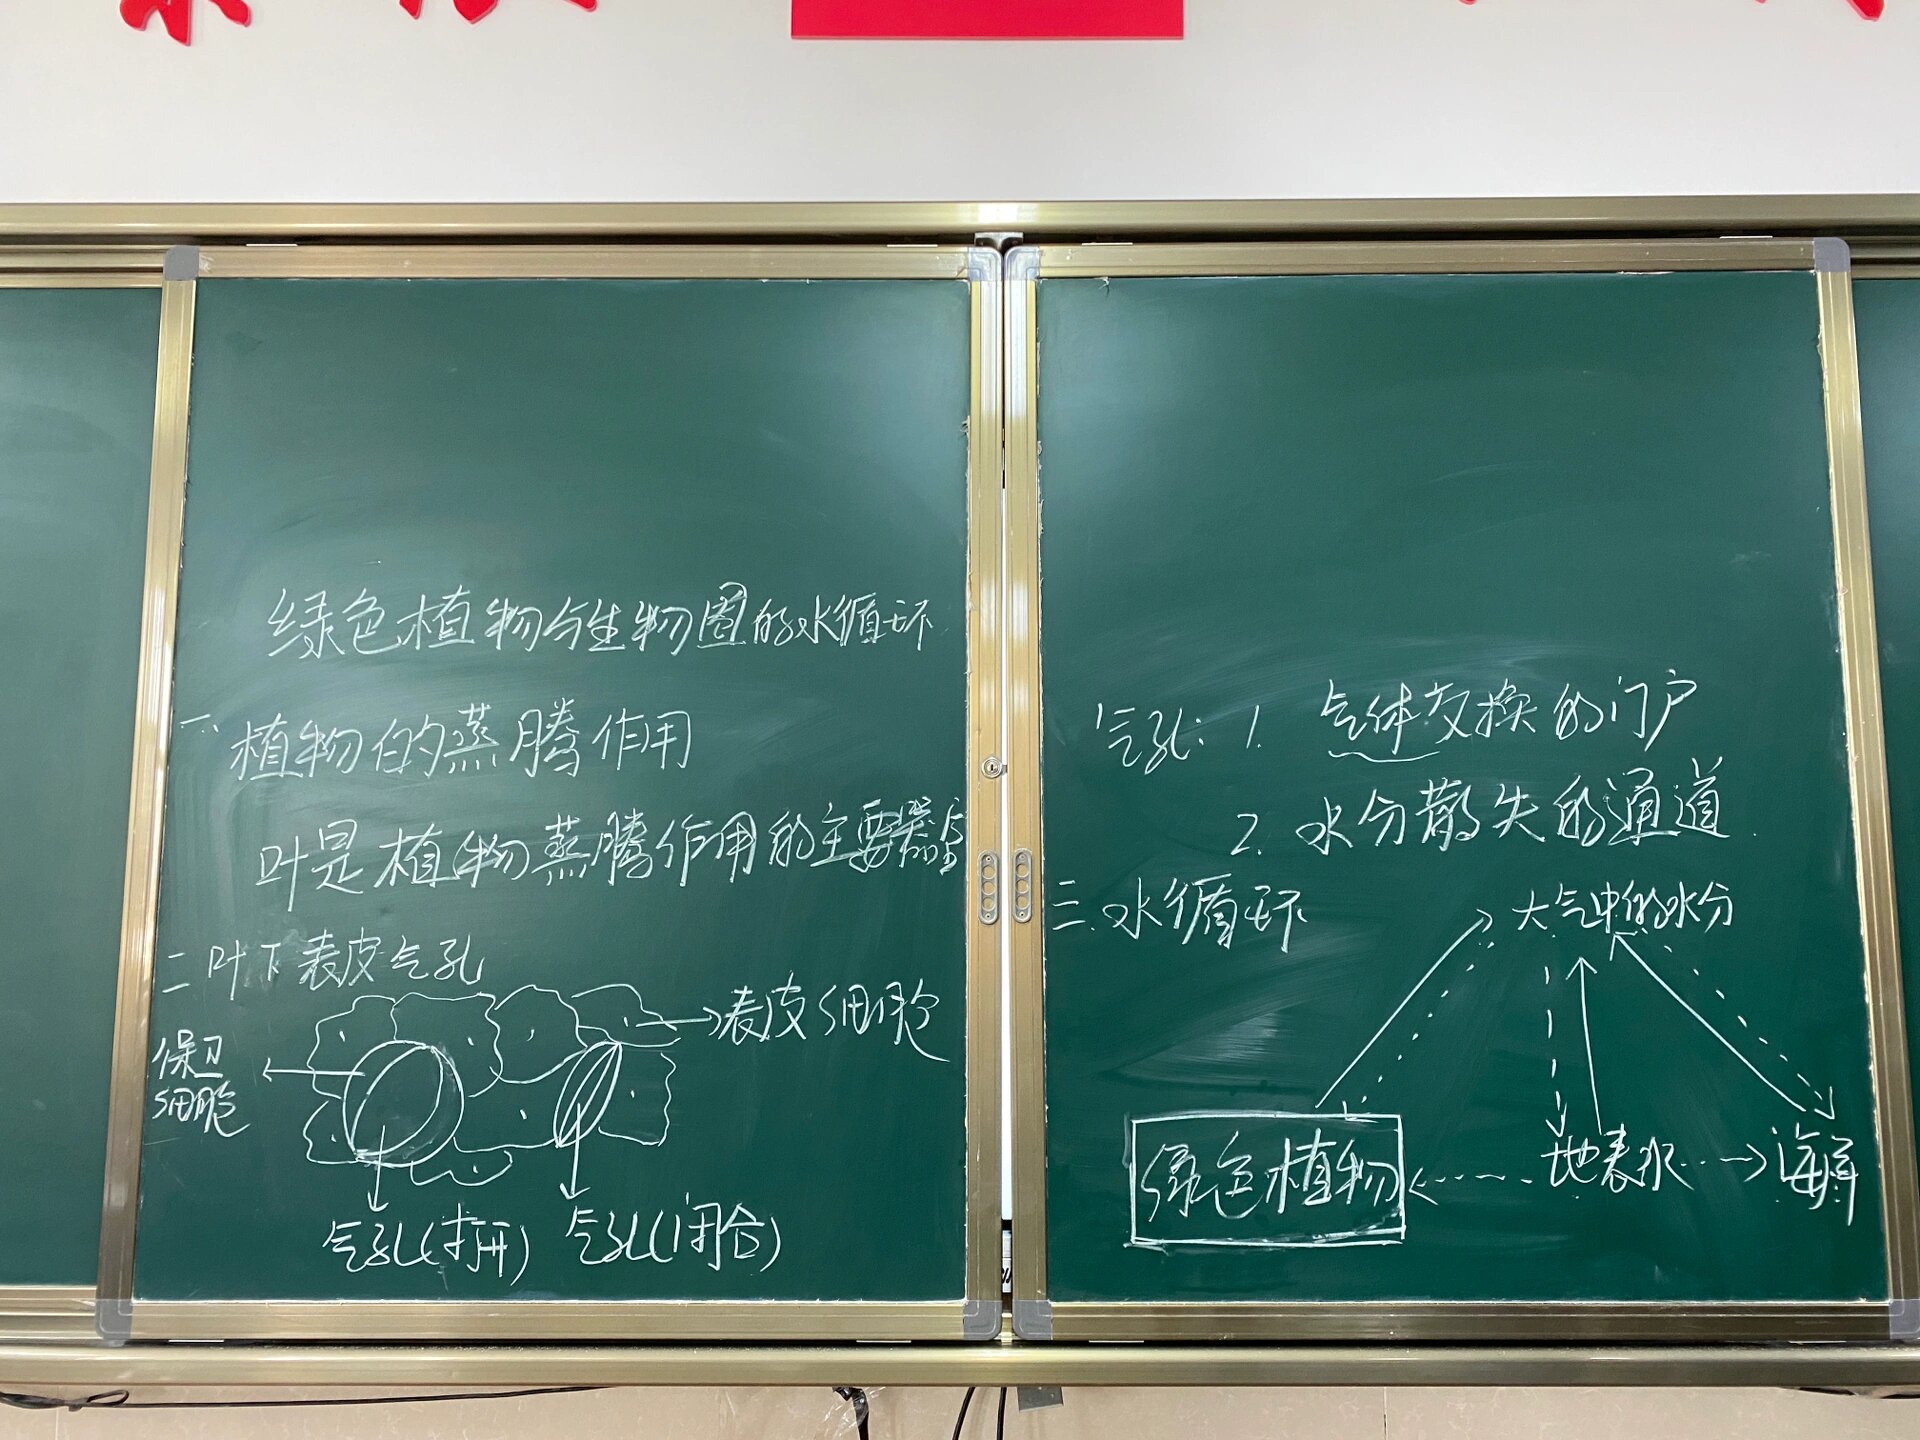 绿色植物与生物圈的水循环
一、植物的蒸腾作用
叶是植物蒸腾作用的主要器官
二 叶下表皮气孔
保卫
细胞
表皮细胞
气孔(打开) 气孔(闭合)
气孔: 1. 气体交换的门户
2. 水分散失的通道.
三.水循环
大气中的水分
绿色植物
地表水
海洋